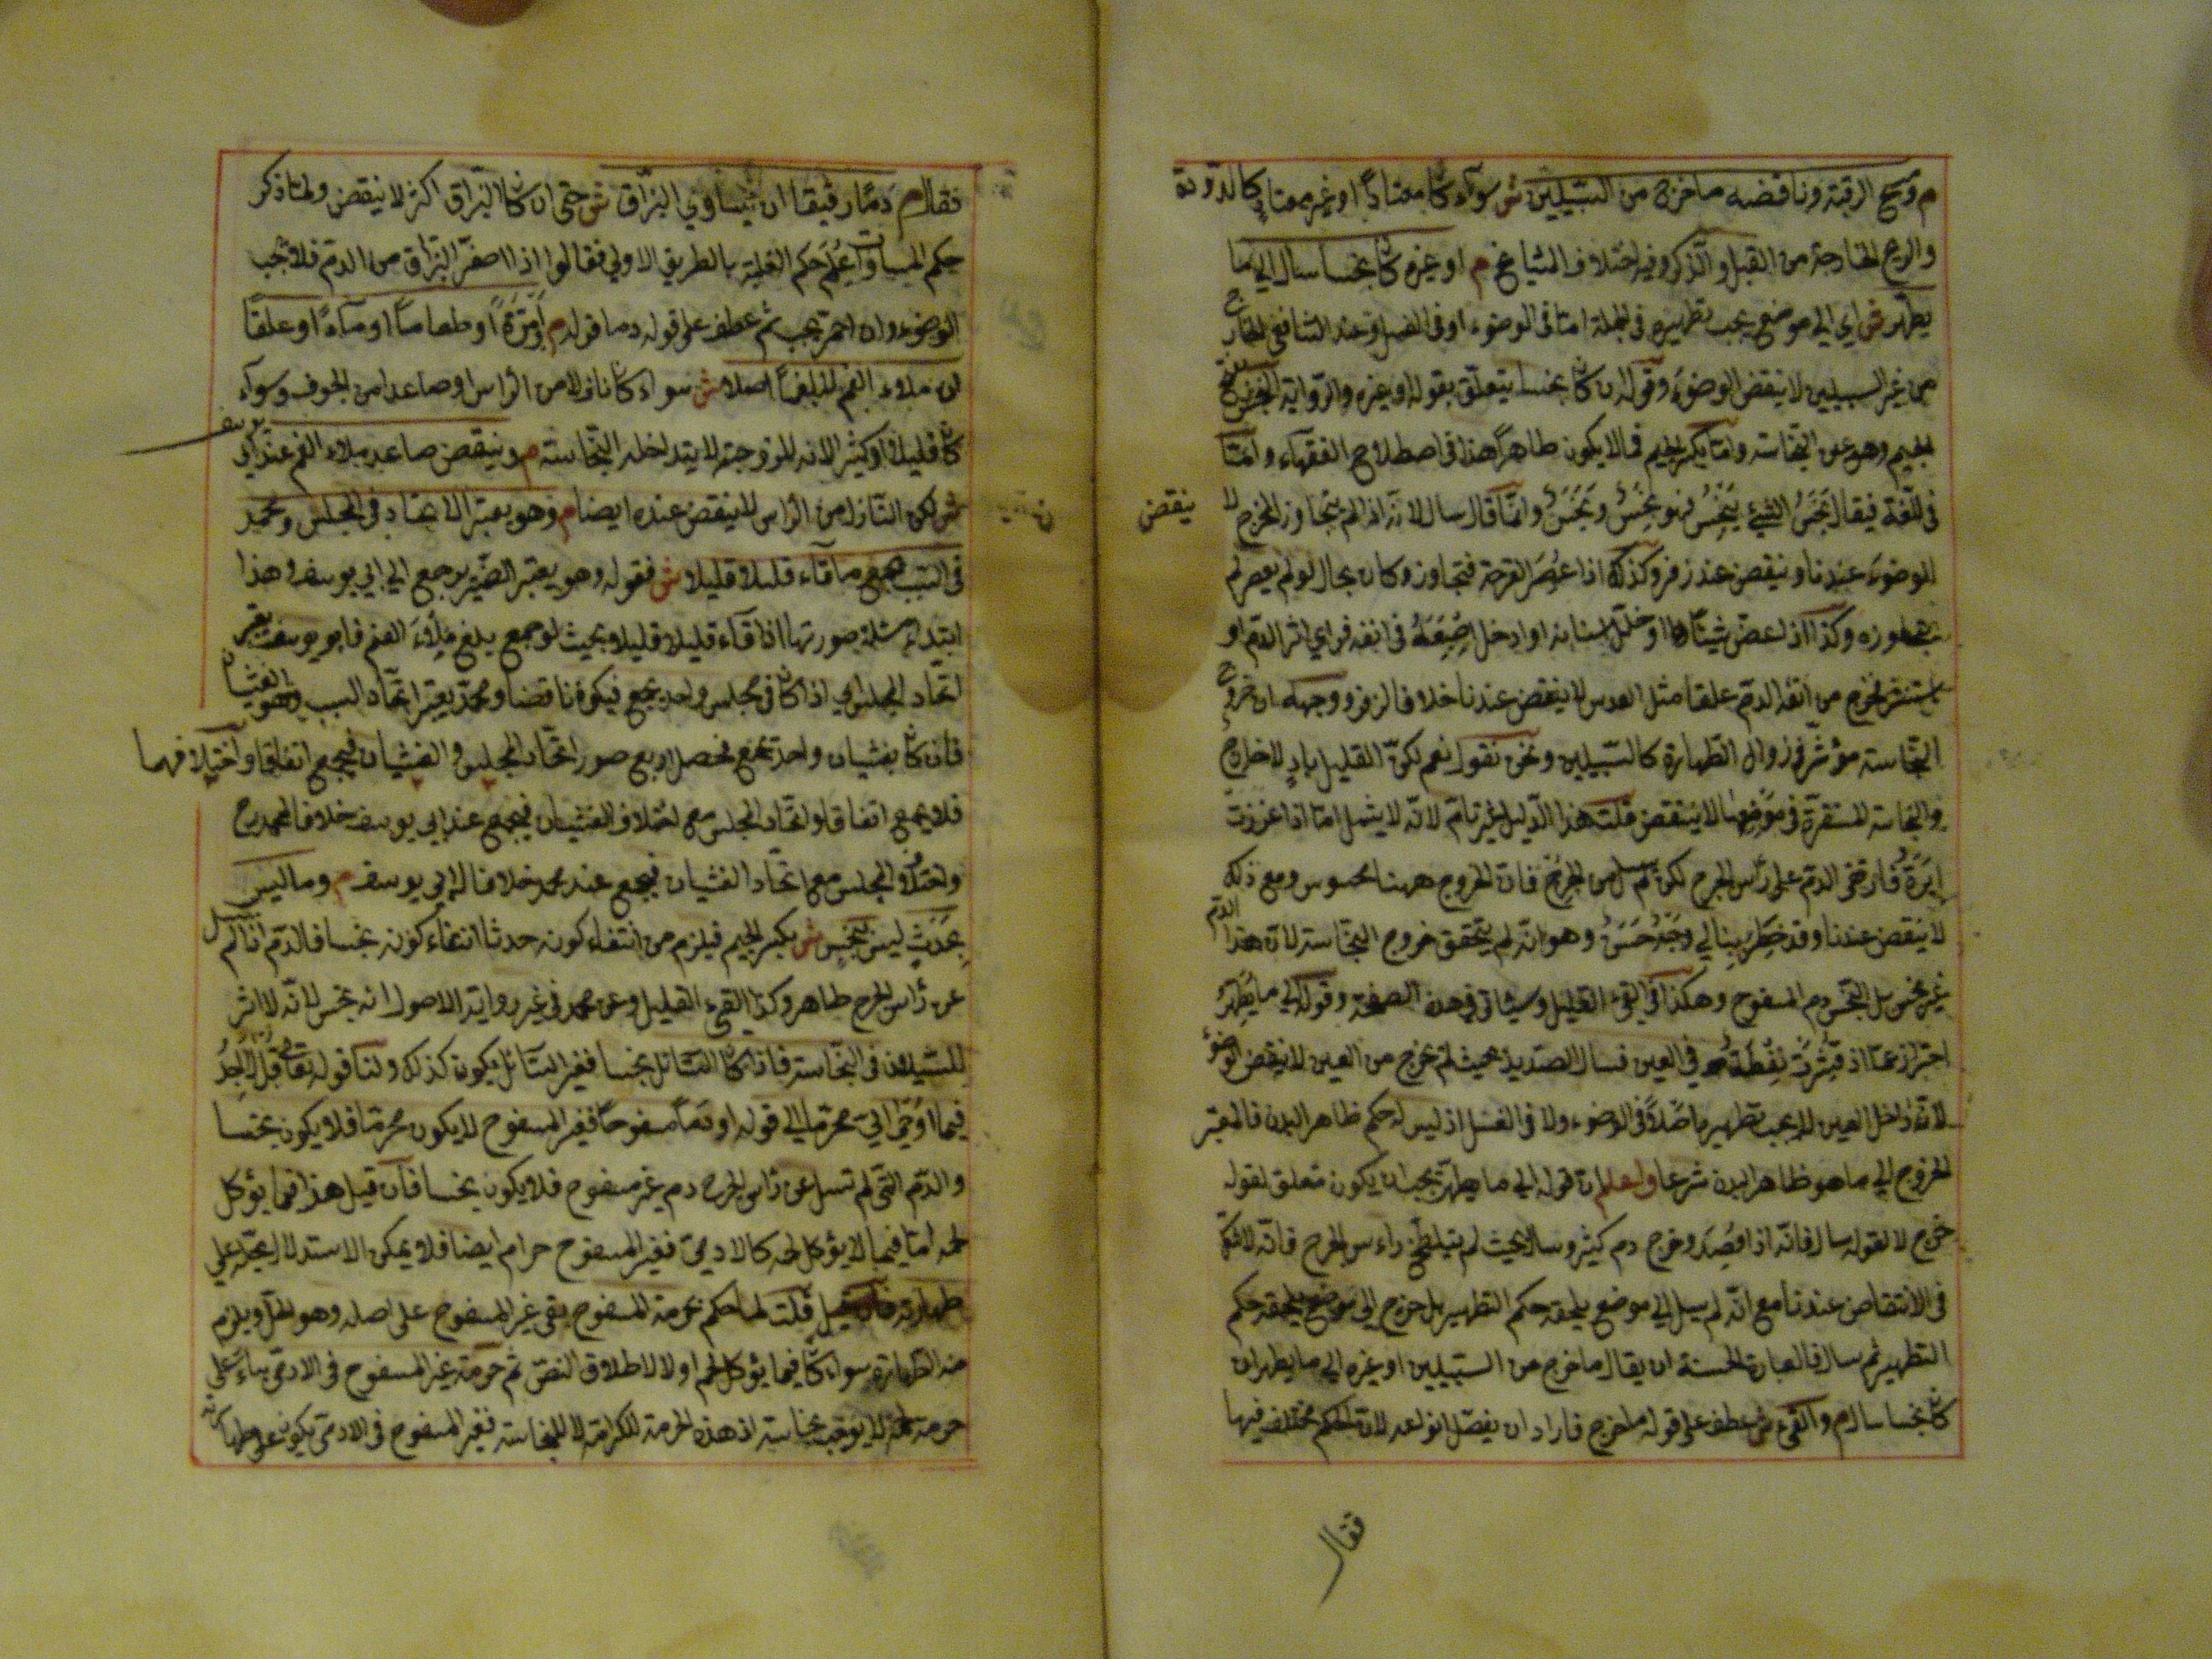 م ومسح الرقبة وناقضه ما خرج من السبيلين ش سواء كان معتادا او غير معتاد كالدودة
والريح الخارجة من القبل والذكر وفيه اختلاف المشايخ م او غيره ان كان نجسا سال الى ما
يطهر ش اي الى موضع يجب تطهيره في الجملة اما في الوضوء او في الغسل وعند الشافعي الخارج
من غير السبيلين لا ينقض الوضوء وقوله ان كان نجسا يتعلق بقوله او غيره والرواية النجس بفتح
الجيم وهو عين النجاسة واما بكسر الجيم فما لا يكون طاهرا هذا في اصطلاح الفقهاء واما
في اللغة فيقال نجس الشيء ينجس فهو نجس ونجس وانما قال سال لانه اذا لم يتجاوز المخرج لا ينقض
الوضوء عندنا وينقض عند زفر وكذلك اذا عصر القرحة فتجاوز وكان بحال لو لم يعصر لم
يتجاوزه وكذا اذا عض شيئا او خلل اسنانه او ادخل اصبعه في انفه فراى اثر الدم او
استنثر فخرج من انفه الدم علقا مثل العدس لا ينقض عندنا خلافا لزفر ووجهه ان خروج
النجاسة مؤثر في زوال الطهارة كالسبيلين ونحن نقول نعم لكن القليل باد لا خارج
والنجاسة المستقرة في موضعها لا ينتقض قلت هذا الدليل غير تام لانه لا يشمل اما اذا غرزت
ابرة فارتقى الدم على راس الجرح لكن لم يسل من الجرح فان الخروج ههنا محسوس ومع ذلك
لا ينقض عندنا وقد خطر ببالي وجه حسن وهو انه لم يتحقق خروج النجاسة لان هذا الدم
غير نجس بل النجس دم المسفوح وهكذا في القيء القليل وسياتي في هذه الصفحة وقوله الى ما يطهر
احتراز عما اذا قشرت نفطة في العين فسال الصديد بحيث لم يخرج من العين لا ينقض الوضوء
لان داخل العين لا يجب تطهيره اصلا في الوضوء ولا في الغسل اذ ليس له حكم ظاهر البدن فالمعتبر
الخروج الى ما هو ظاهر البدن شرعا واعلم ان قوله الى ما يطهر يجب ان يكون متعلقا لقوله
خرج لا لقوله سال فانه اذا فصد وخرج دم كثير وسال بحيث لم يتلطخ راس الجرح فانه لا شك
في الانتقاض عندنا مع انه لم يسل الى موضع يلحقه حكم التطهير بل خرج الى موضع يلحقه حكم
التطهير ثم سال فالعبارة الحسنة ان يقال ما خرج من السبيلين او غيره الى ما يطهر ان
كان نجسا سال م والقيء ش عطف على قوله ما خرج فاراد ان يفصل انواعه لان الحكم مختلف فيها
فقال
فقال م دما رقيقا ان ساوى البزاق ش حتى ان كان البزاق اكثر لا ينقض ولما ذكر
حكم المساواة علم حكم الغلبة بالطريق الاولى فقالوا اذا اصفر البزاق من الدم فلا يجب
الوضوء وان احمر يجب ثم عطف على قوله دما قوله م او مرة او طعاما او ماء او علقا
ان ملاء الفم لا بلغما اصلا ش سواء كان نازلا من الراس او صاعدا من الجوف وسواء
كان قليلا او كثيرا لانه للزوجته لا يتداخله النجاسة م وينقض صاعد ملاء الفم عند ابي يوسف
ش لكن النازل من الراس لا ينقض عنده ايضا م وهو يعتبر الاتحاد في المجلس ومحمد
في السبب لجمع ما قاء قليلا قليلا ش فقوله وهو يعتبر الضمير يرجع الى ابي يوسف وهذا
ابتداء مسئلة صورتها اذا قاء قليلا قليلا بحيث لو جمع يبلغ ملاء الفم فابو يوسف يعتبر
اتحاد المجلس اي اذا كان في مجلس واحد يجمع فيكون ناقضا ومحمد يعتبر اتحاد السبب وهو الغثيان
فان كان بغثيان واحد يجمع فحصل اربع صور اتحاد المجلس والغثيان فيجمع اتفاقا واختلافهما
فلا يجمع اتفاقا واتحاد المجلس مع اختلاف الغثيان فيجمع عند ابي يوسف خلافا لمحمد رح
واختلاف المجلس مع اتحاد الغثيان فيجمع عند محمد خلافا لابي يوسف م وما ليس
بحدث ليس بنجس ش بكسر الجيم فيلزم من انتفاء كونه حدثا انتفاء كونه نجسا فالدم اذا لم يسل
عن راس الجرح طاهر وكذا القيء القليل وعن محمد في غير رواية الاصول انه نجس لانه لا اثر
للسيلان في النجاسة فاذا كان السائل نجسا فغير السائل يكون كذلك ولنا قوله تعالى قل لا اجد
فيما اوحي الي محرما الى قوله او دما مسفوحا فغير المسفوح لا يكون محرما فلا يكون نجسا
والدم التي لم تسل عن راس الجرح دم غير مسفوح فلا يكون نجسا فان قيل هذا فيما يؤكل
لحمه اما فيما لا يؤكل لحمه كالادمي فغير المسفوح حرام ايضا فلا يمكن الاستدلال بحله على
طهارته قلت لما حكم بحرمة المسفوح بقي غير المسفوح على اصله وهو الحل ويلزم
منه الطهارة سواء كان فيما يؤكل لحمه او لا لاطلاق النص ثم حرمة غير المسفوح في الادمي بناء على
حرمة لحمه لا يوجب نجاسته اذ هذه الحرمة للكرامة لا للنجاسة فغير المسفوح في الادمي يكون على طهارته